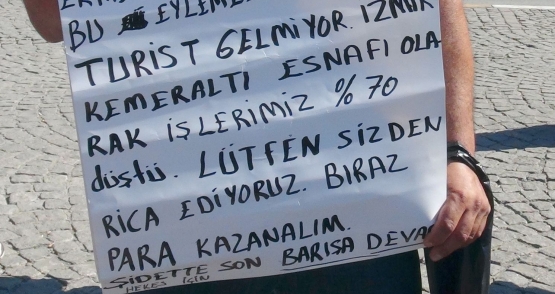 BU EYLEME
TURİST GELMİYOR. İZMİR
KEMERALTI ESNAFI OLA
RAK İŞLERİMİZ %70
düştü. LÜTFEN SİZDEN
RİCA EDİYORUZ. BIRAZ
PARA KAZANALIM.
ŞİDETTE SON BARIŞA DEVA
HEKES İÇİN